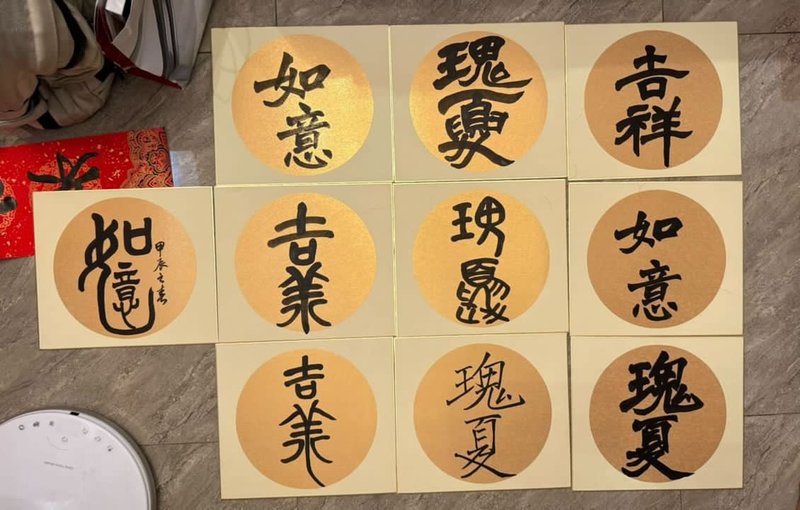 如
意
瑰
夏
吉
祥
如
意
甲辰之春
吉
美
瑰
夏
如
意
吉
美
瑰
夏
瑰
夏